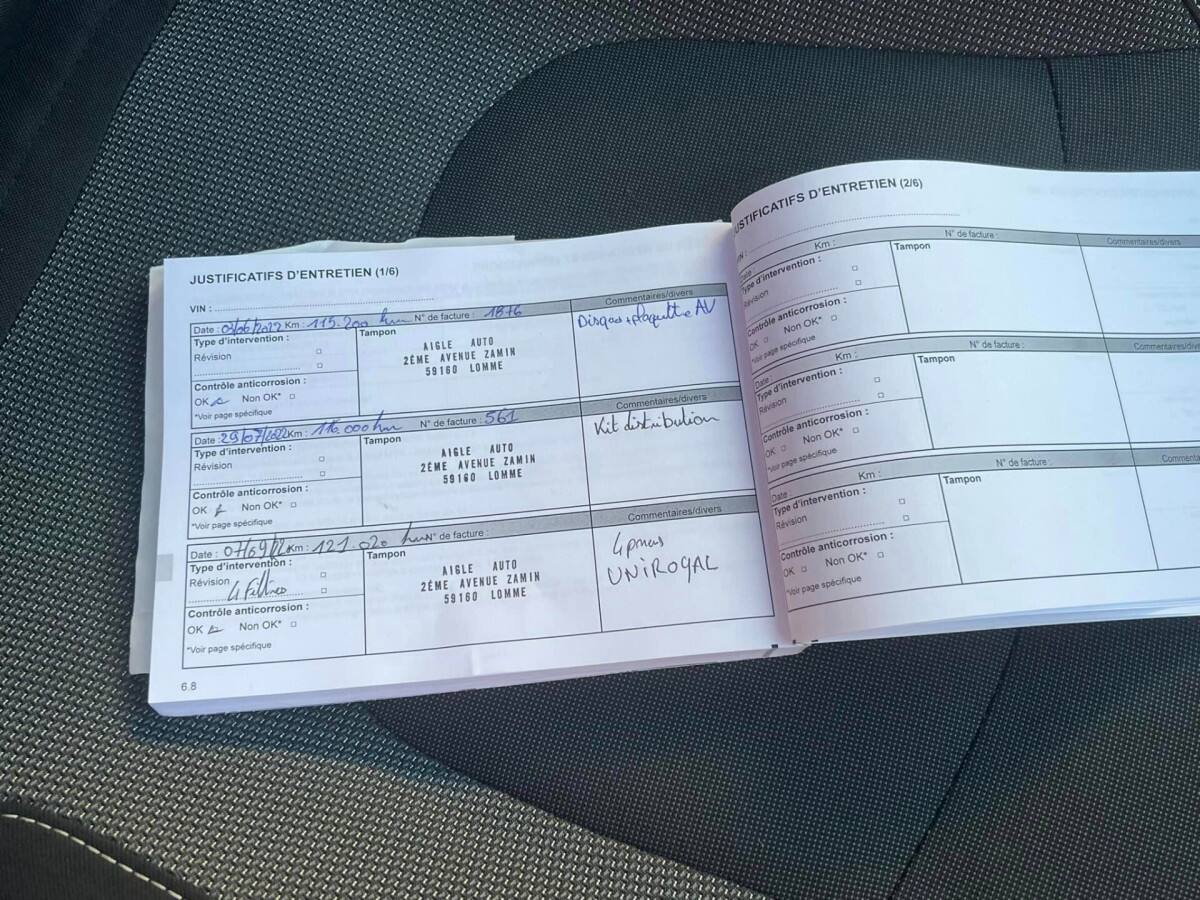 JUSTIFICATIFS D'ENTRETIEN (1/6)
VIN :
Date : /2022 Km : 115.200 km N° de facture : 1876
Commentaires/divers
Type d'intervention :
Révision
Contrôle anticorrosion :
OK Non OK*
*Voir page spécifique
Tampon
AIGLE AUTO
2ÉME AVENUE ZAMIN
59160 LOMME
Disques + plaquette AV
Date : 29/07/2022 Km : 116.000 km N° de facture : 561
Commentaires/divers
Type d'intervention :
Révision
Contrôle anticorrosion :
OK Non OK*
*Voir page spécifique
Tampon
AIGLE AUTO
2ÉME AVENUE ZAMIN
59160 LOMME
Kit distribution
Date : 07/09/22 Km : 121.020 km N° de facture :
Commentaires/divers
Type d'intervention :
Révision
4 Filtres
Contrôle anticorrosion :
OK Non OK*
*Voir page spécifique
Tampon
AIGLE AUTO
2ÉME AVENUE ZAMIN
59160 LOMME
4 pneus
UNIROYAL
6.8
JUSTIFICATIFS D'ENTRETIEN (2/6)
VIN :
Date Km : N° de facture :
Commentaires/divers
Type d'intervention :
Révision
Contrôle anticorrosion :
OK Non OK*
*Voir page spécifique
Tampon
Date : Km : N° de facture :
Commentaires/divers
Type d'intervention :
Révision
Contrôle anticorrosion :
OK Non OK*
*Voir page spécifique
Tampon
Date : Km : N° de facture :
Commenta
Type d'intervention :
Révision
Contrôle anticorrosion :
OK Non OK*
*Voir page spécifique
Tampon